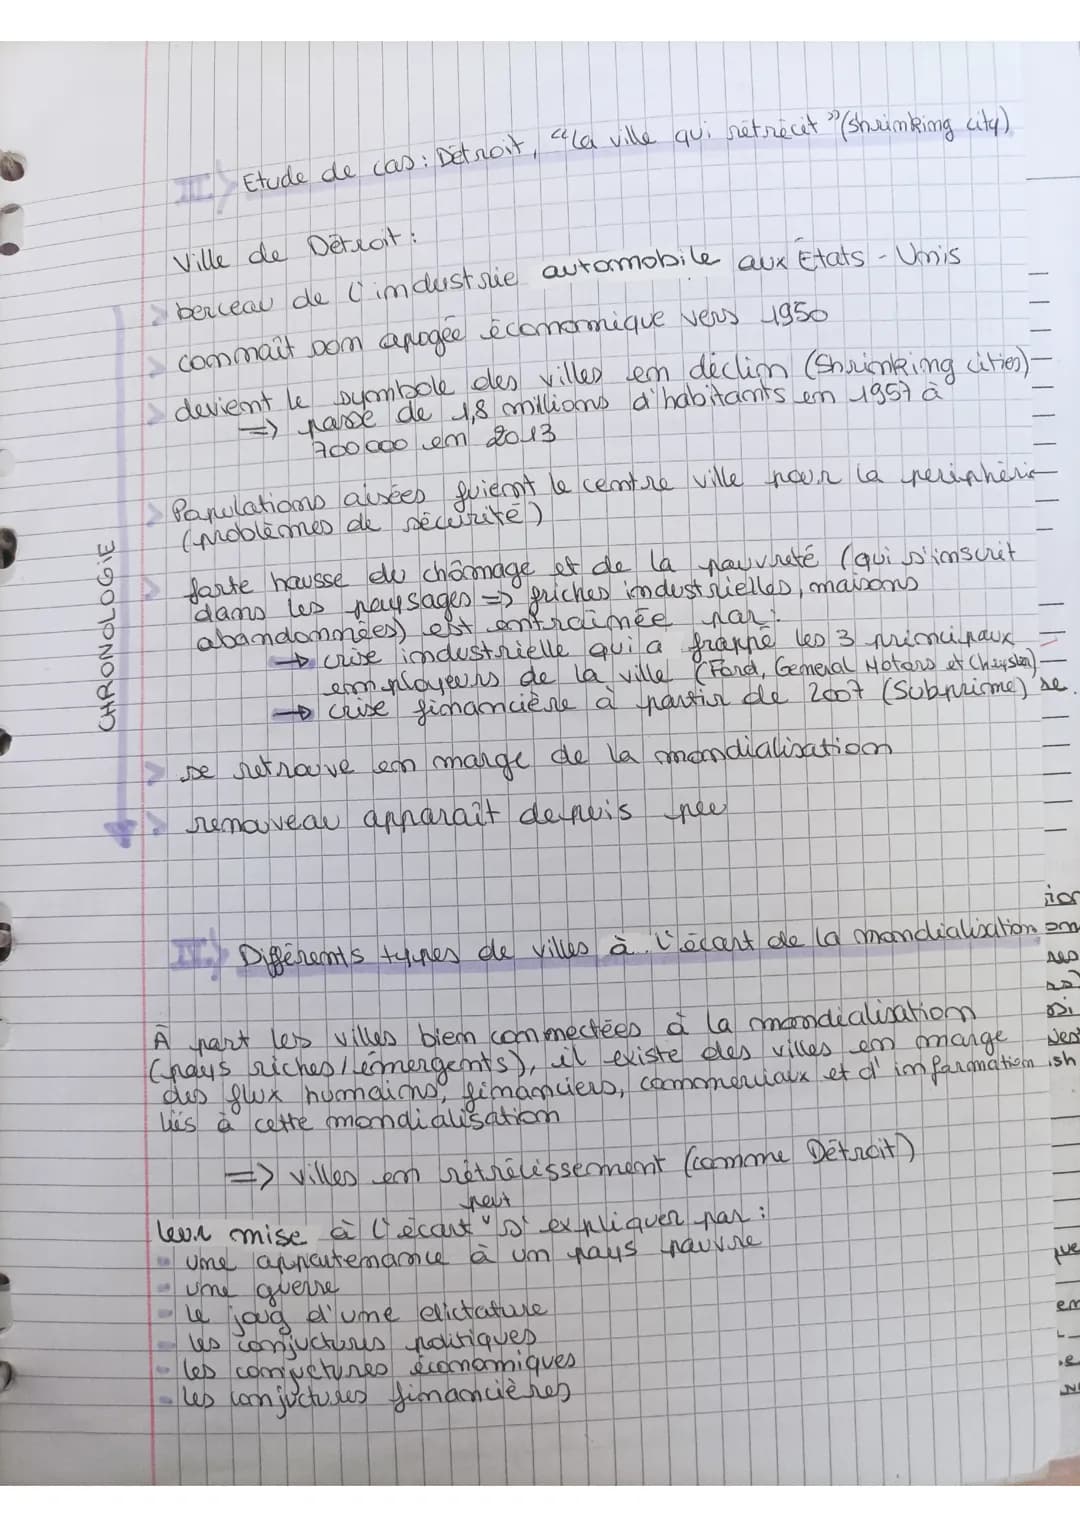 III.) Etude de cas : Détroit, "la ville qui rétrécit" (Shrimking city)
Ville de Détroit :
berceau de l'industrie automobile aux États-Unis
connaît son apogée économique vers 1950
devient le symbole des villes en déclin (Shrinking cities)
=> passe de 1,8 millions d'habitants en 1957 à
700 000 en 2013
Populations aisées fuient le centre ville pour la périphérie
(problèmes de sécurité)
forte hausse du chômage et de la pauvreté (qui s'inscrit
dans les paysages => friches industrielles, maisons
abandonnées) est entraînée par :
→ crise industrielle qui a frappé les 3 principaux
employeurs de la ville (Ford, General Motors et Chrysler)
→ crise financière à partir de 2007 (Subprime) se
se retrouve en marge de la mondialisation
renouveau apparaît depuis peu
CHRONOLOGIE
IV.) Différents types de villes à l'écart de la mondialisation
À part les villes bien connectées à la mondialisation
(pays riches/émergents), il existe des villes en marge
des flux humains, financiers, commerciaux et d'information
liés à cette mondialisation
=> villes en rétrécissement (comme Détroit)
peut
leur mise à l'écart s'expliquer par :
une appartenance à un pays pauvre
une guerre
le joug d'une dictature
les conjuctures politiques
les conjuctures économiques
les conjuctures financières